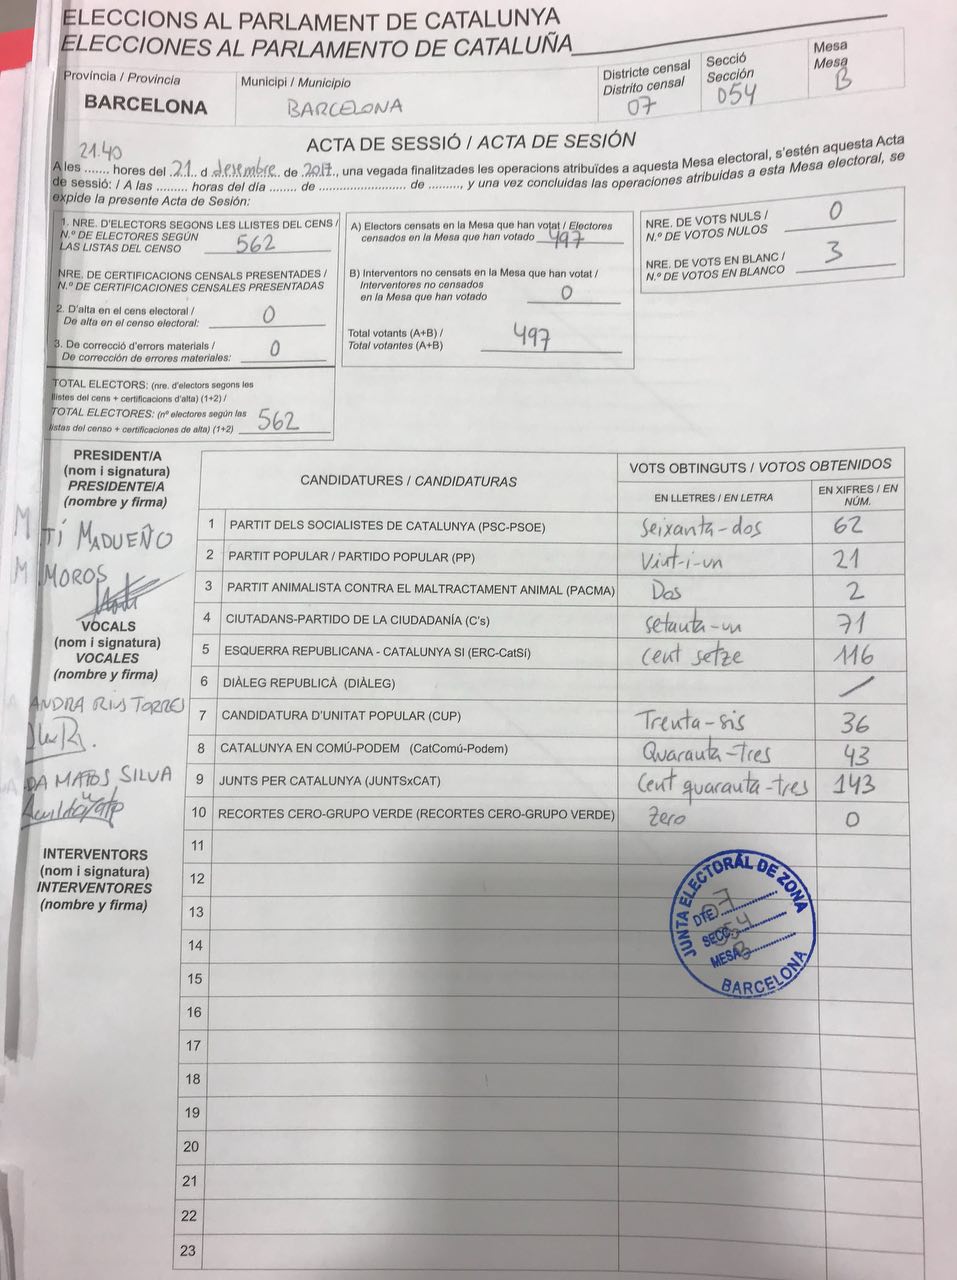 ELECCIONS AL PARLAMENT DE CATALUNYA
ELECCIONES AL PARLAMENTO DE CATALUÑA
Província / Provincia
BARCELONA
Municipi / Municipio
BARCELONA
Districte censal
Distrito censal
07
Secció
Sección
054
Mesa
Mesa
B
ACTA DE SESSIÓ / ACTA DE SESIÓN
21.40
A les ....... hores del .21. d desembre de .2017., una vegada finalitzades les operacions atribuïdes a aquesta Mesa electoral, s'estén aquesta Acta
de sessió: / A las ......... horas del día ........ de ........................ de ........., y una vez concluidas las operaciones atribuidas a esta Mesa electoral, se
expide la presente Acta de Sesión:
1. NRE. D'ELECTORS SEGONS LES LLISTES DEL CENS /
N.º DE ELECTORES SEGÚN
LAS LISTAS DEL CENSO
562
NRE. DE CERTIFICACIONS CENSALS PRESENTADES /
N.º DE CERTIFICACIONES CENSALES PRESENTADAS
2. D'alta en el cens electoral /
De alta en el censo electoral: 0
3. De correcció d'errors materials /
De corrección de errores materiales: 0
TOTAL ELECTORS: (nre. d'electors segons les
llistes del cens + certificacions d'alta) (1+2) /
TOTAL ELECTORES: (nº electores según las
listas del censo + certificaciones de alta) (1+2) 562
A) Electors censats en la Mesa que han votat / Electores
censados en la Mesa que han votado 497
B) Interventors no censats en la Mesa que han votat /
Interventores no censados
en la Mesa que han votado 0
Total votants (A+B) /
Total votantes (A+B) 497
NRE. DE VOTS NULS /
N.º DE VOTOS NULOS 0
NRE. DE VOTS EN BLANC /
N.º DE VOTOS EN BLANCO 3
PRESIDENT/A
(nom i signatura)
PRESIDENTE/A
(nombre y firma)
TÍ MADUEÑO
MOROS
VOCALS
(nom i signatura)
VOCALES
(nombre y firma)
ANDRA RIUS TORRES
DA MATOS SILVA
INTERVENTORS
(nom i signatura)
INTERVENTORES
(nombre y firma)
CANDIDATURES / CANDIDATURAS
VOTS OBTINGUTS / VOTOS OBTENIDOS
EN LLETRES / EN LETRA
EN XIFRES / EN NÚM.
1 PARTIT DELS SOCIALISTES DE CATALUNYA (PSC-PSOE) Seixanta-dos 62
2 PARTIT POPULAR / PARTIDO POPULAR (PP) Vint-i-un 21
3 PARTIT ANIMALISTA CONTRA EL MALTRACTAMENT ANIMAL (PACMA) Dos 2
4 CIUTADANS-PARTIDO DE LA CIUDADANÍA (C's) setanta-un 71
5 ESQUERRA REPUBLICANA - CATALUNYA SI (ERC-CatSí) cent setze 116
6 DIÀLEG REPUBLICÀ (DIÀLEG) /
7 CANDIDATURA D'UNITAT POPULAR (CUP) Trenta-sis 36
8 CATALUNYA EN COMÚ-PODEM (CatComú-Podem) Quaranta-tres 43
9 JUNTS PER CATALUNYA (JUNTSxCAT) Cent quaranta-tres 143
10 RECORTES CERO-GRUPO VERDE (RECORTES CERO-GRUPO VERDE) Zero 0
11
12
13
14
15
16
17
18
19
20
21
22
23
JUNTA ELECTORAL DE ZONA
DTE. 07
SECC. 054
MESA B
BARCELONA